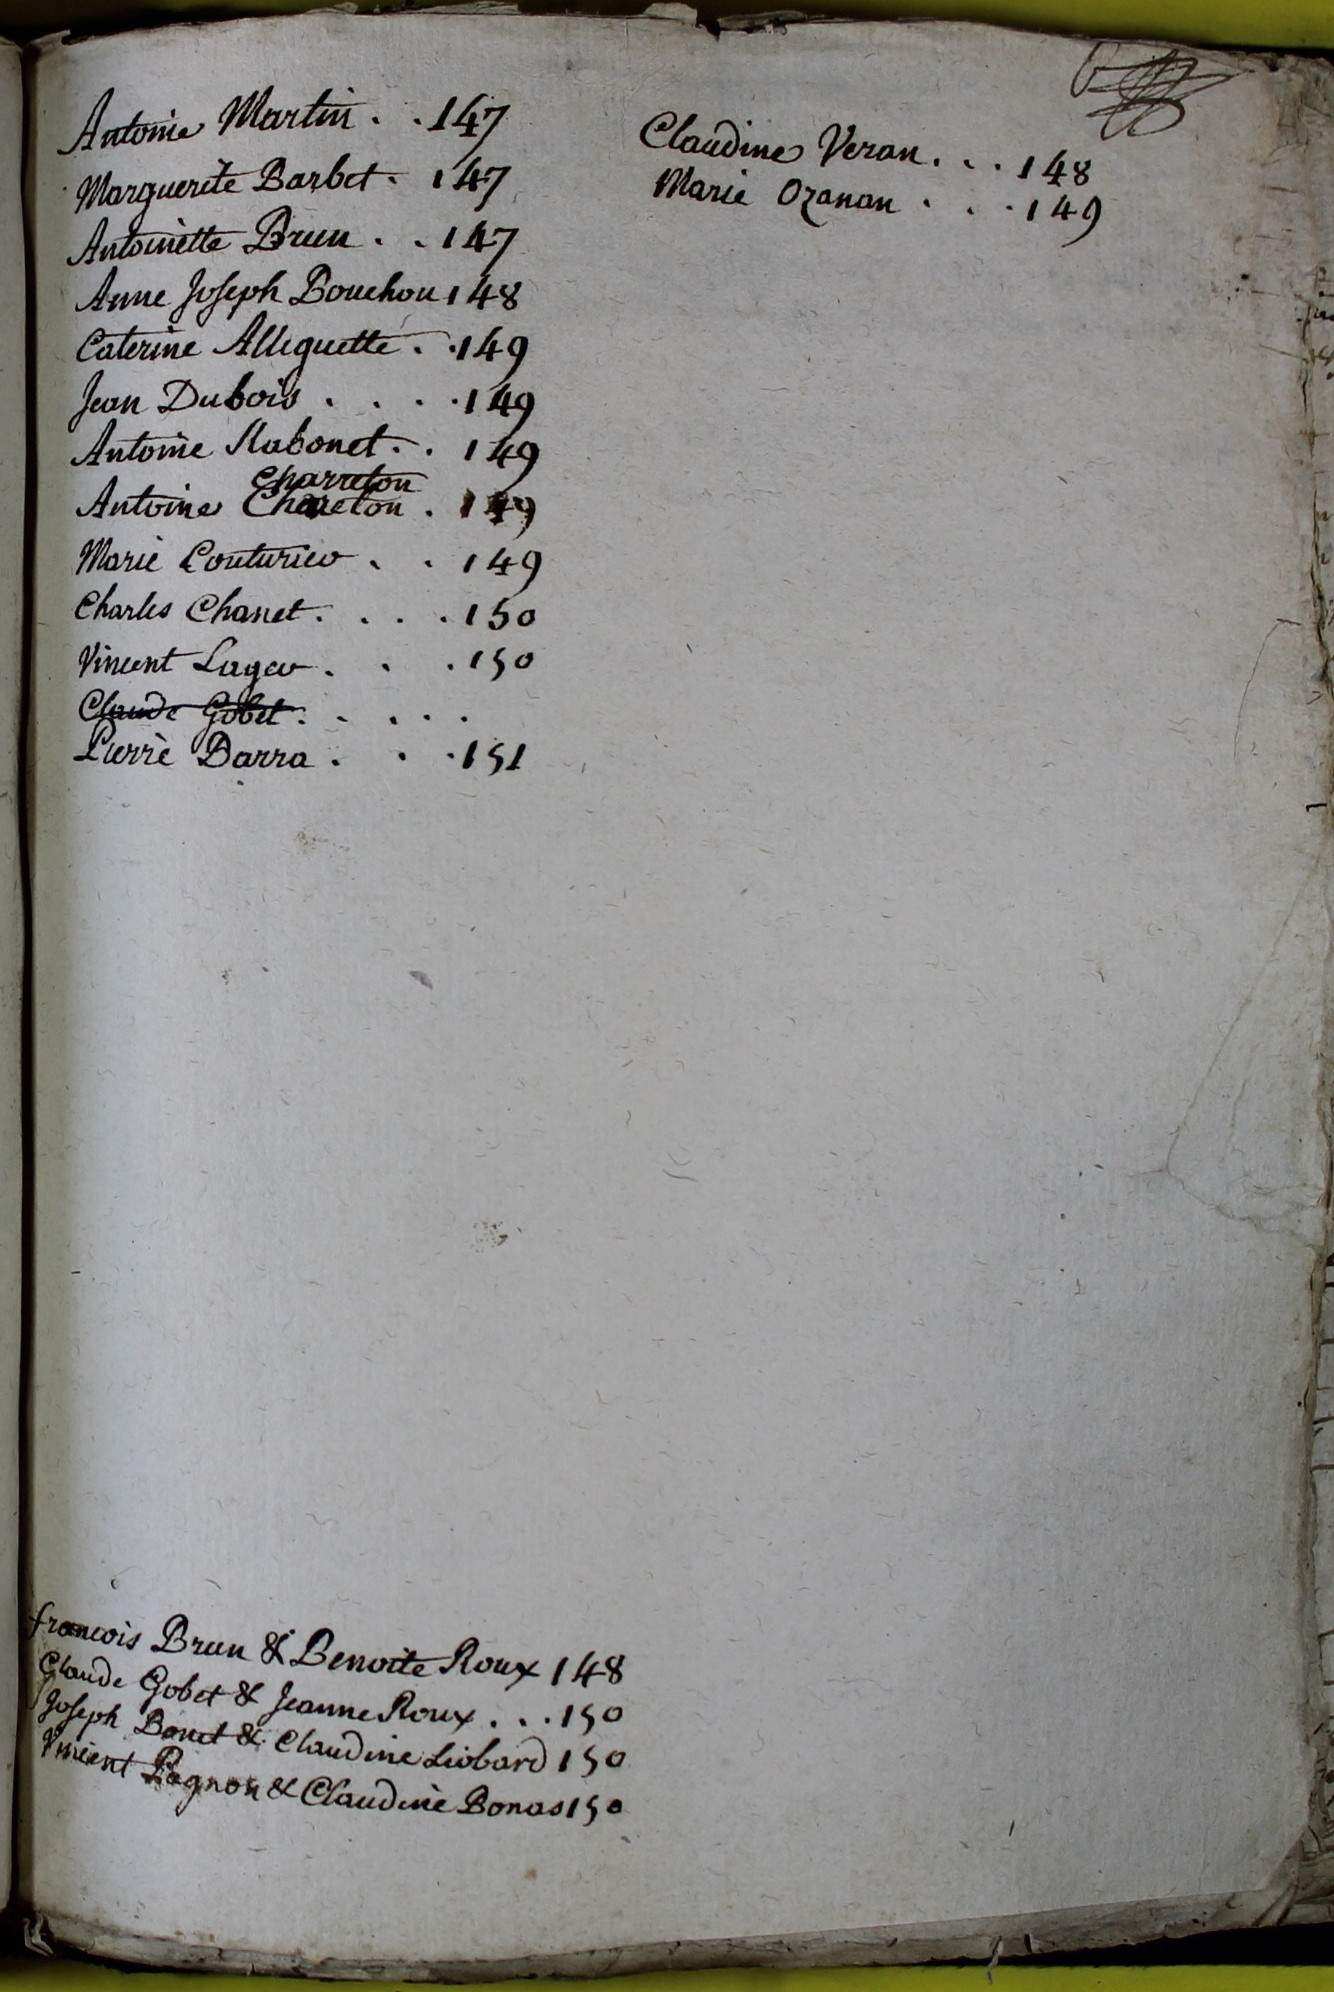 Antoine Martin . . 147
Marguerite Barbet . 147
Antoinette Brun . . 147
Anne Joseph Bouchou 148
Caterine Alleguette . . 149
Jean Dubois . . . . 149
Antoine Rabonet . . 149
Charreton
Antoine Chareton . 149
Marie Couturier . . 149
Charles Chanet . . . . 150
Vincent Lager . . . 150
Claude Gobet . . . . .
Pierre Barra . . . 151
Claudine Veran . . . 148
Marie Ozanan . . . 149
francois Brun & Benoite Roux 148
Claude Gobet & Jeanne Roux . . . 150
Joseph Bonet & Claudine Liobard 150
Vincent Pagnon & Claudine Bonas 150